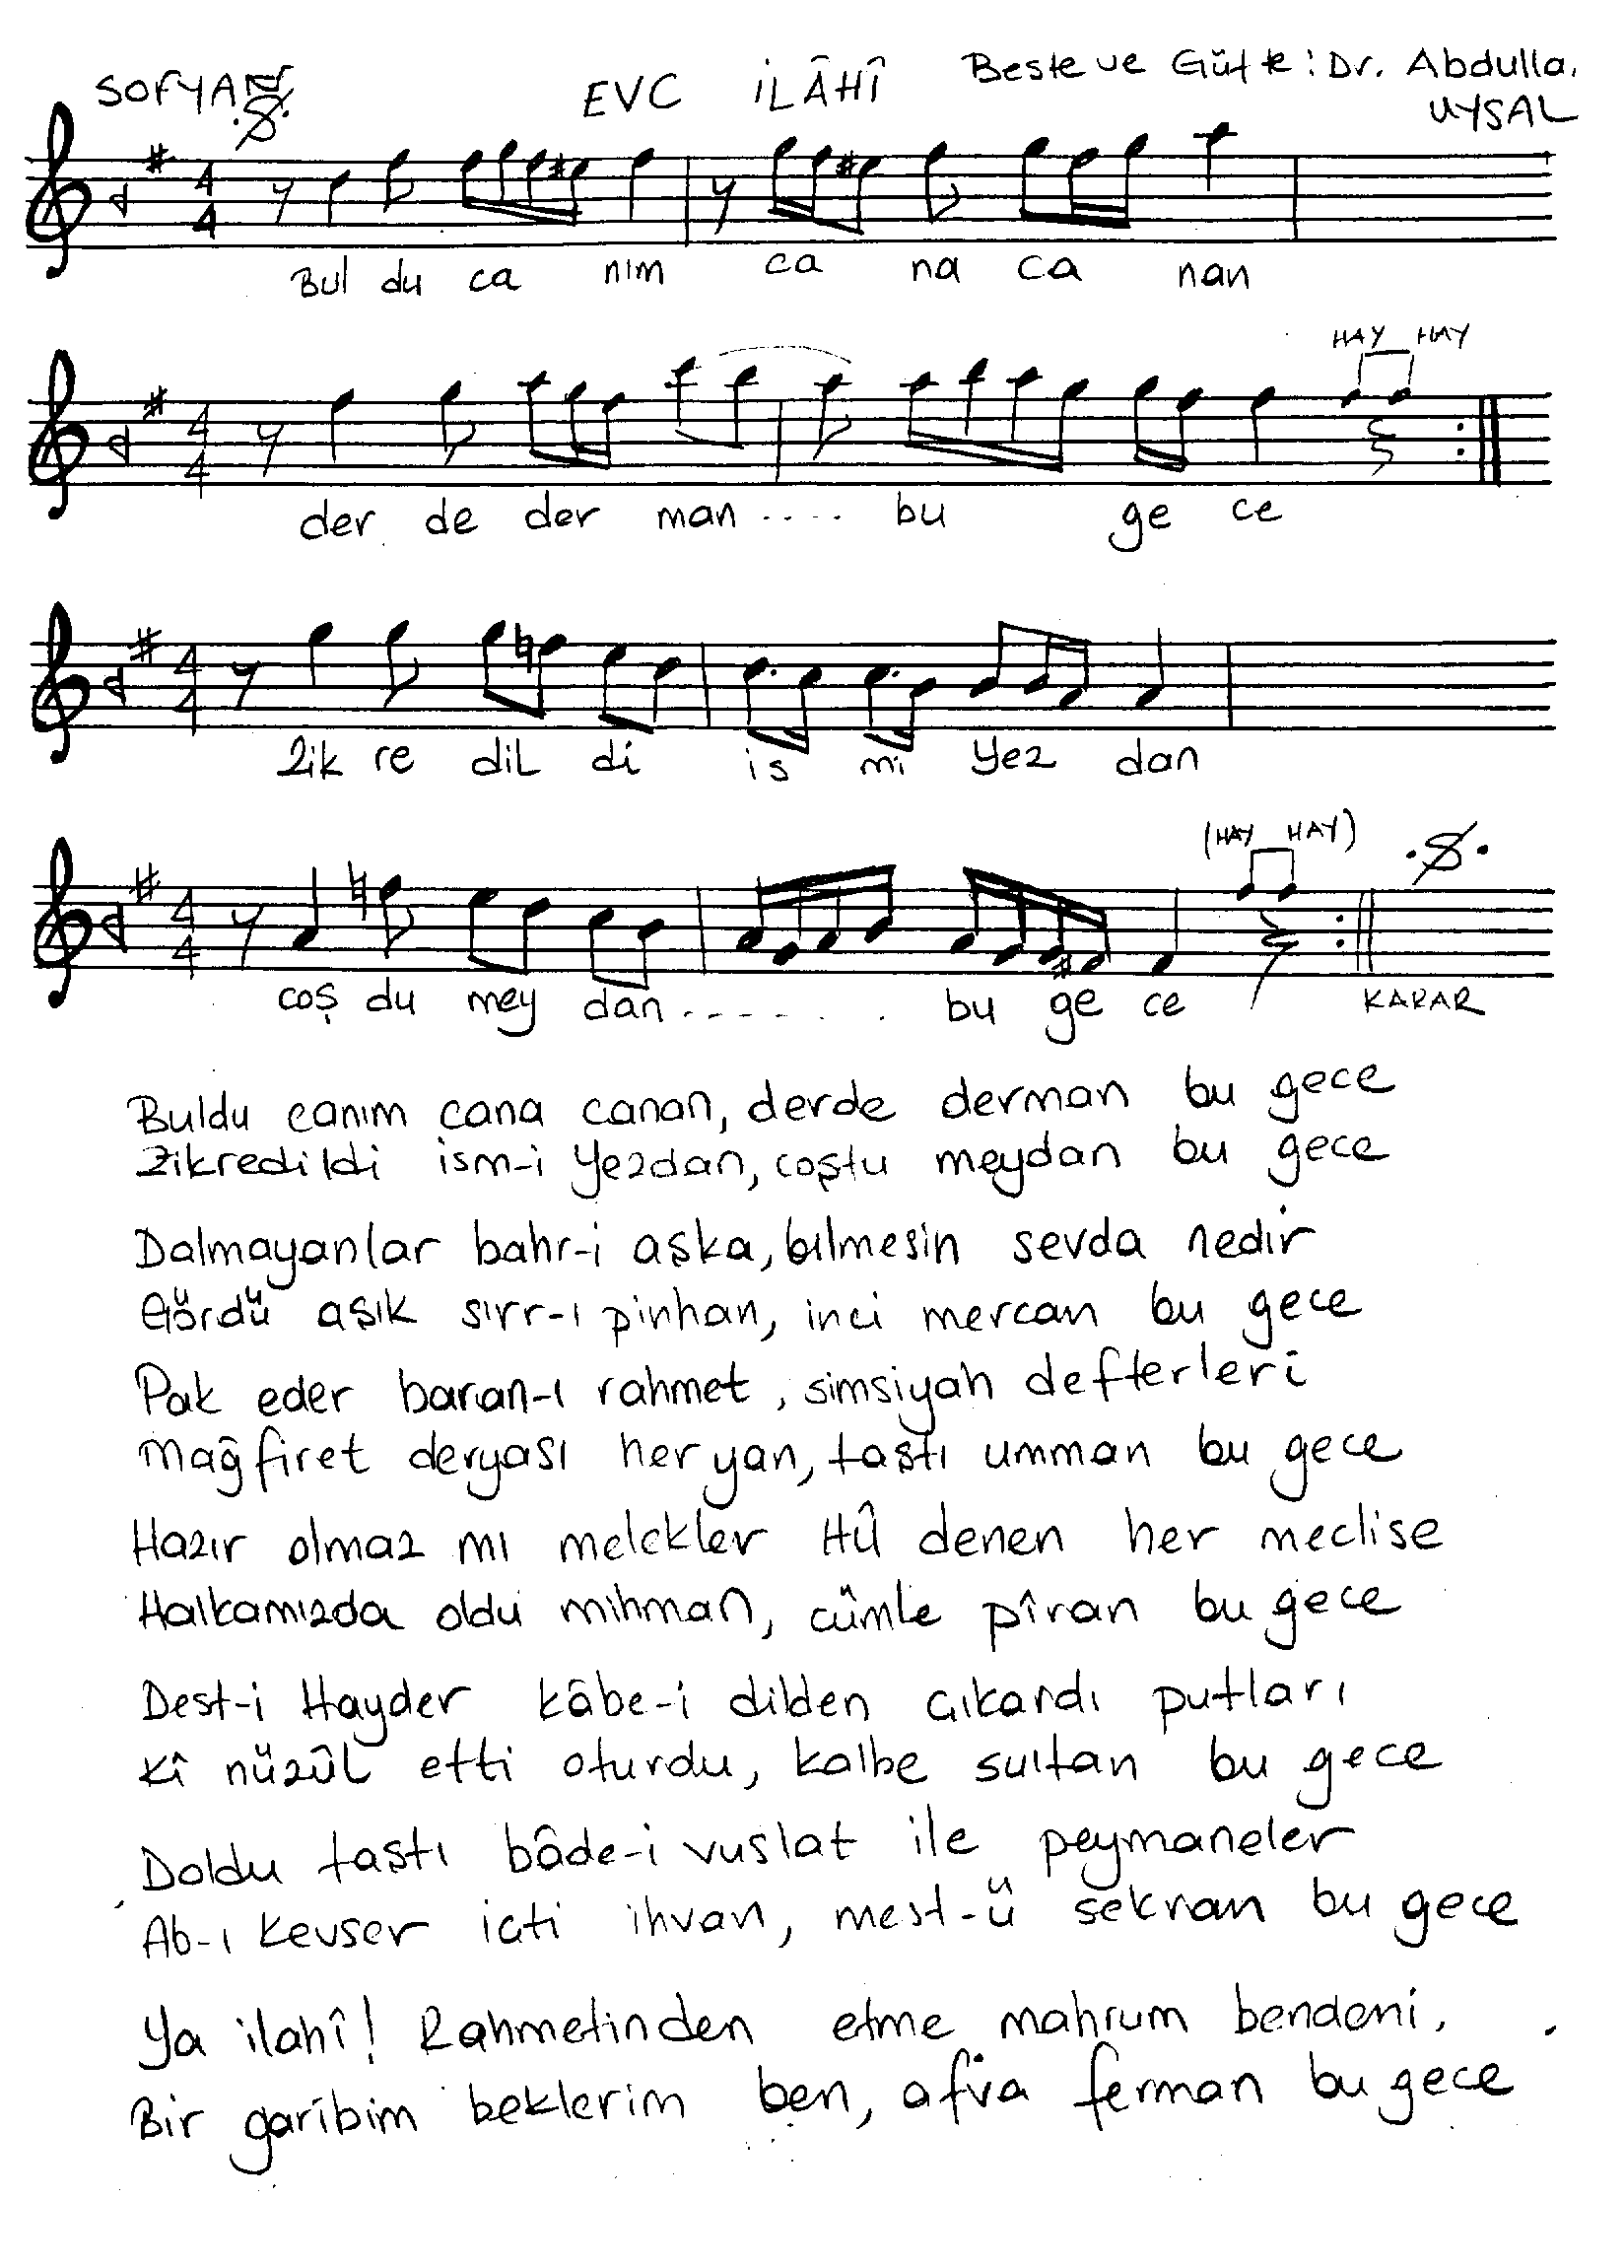 SOFYAN
EVC İLÂHÎ
Beste ve Güfte: Dr. Abdulla.
UYSAL
4 4
Bul du ca nım ca na ca nan
HAY HAY
4 4
der de der man .... bu ge ce
4 4
Zik re dil di is mi Yez dan
(HAY HAY)
4 4
coş du mey dan...... bu ge ce KARAR
Buldu canım cana canan, derde derman bu gece
Zikredildi ism-i Yezdan, coştu meydan bu gece
Dalmayanlar bahr-i aşka, bilmesin sevda nedir
Gördü aşık sırr-ı pinhan, inci mercan bu gece
Pak eder baran-ı rahmet, simsiyah defterleri
Mağfiret deryası her yan, taştı umman bu gece
Hazır olmaz mı melekler Hû denen her meclise
Halkamızda oldu mihman, cümle pîran bu gece
Dest-i Hayder kâbe-i dilden çıkardı putları
Kî nüzûl etti oturdu, kalbe sultan bu gece
Doldu taştı bâde-i vuslat ile peymaneler
Ab-ı Kevser içti ihvan, mest-ü sekran bu gece
Ya ilahî! Rahmetinden etme mahrum bendeni,
Bir garîbim beklerim ben, afva ferman bu gece